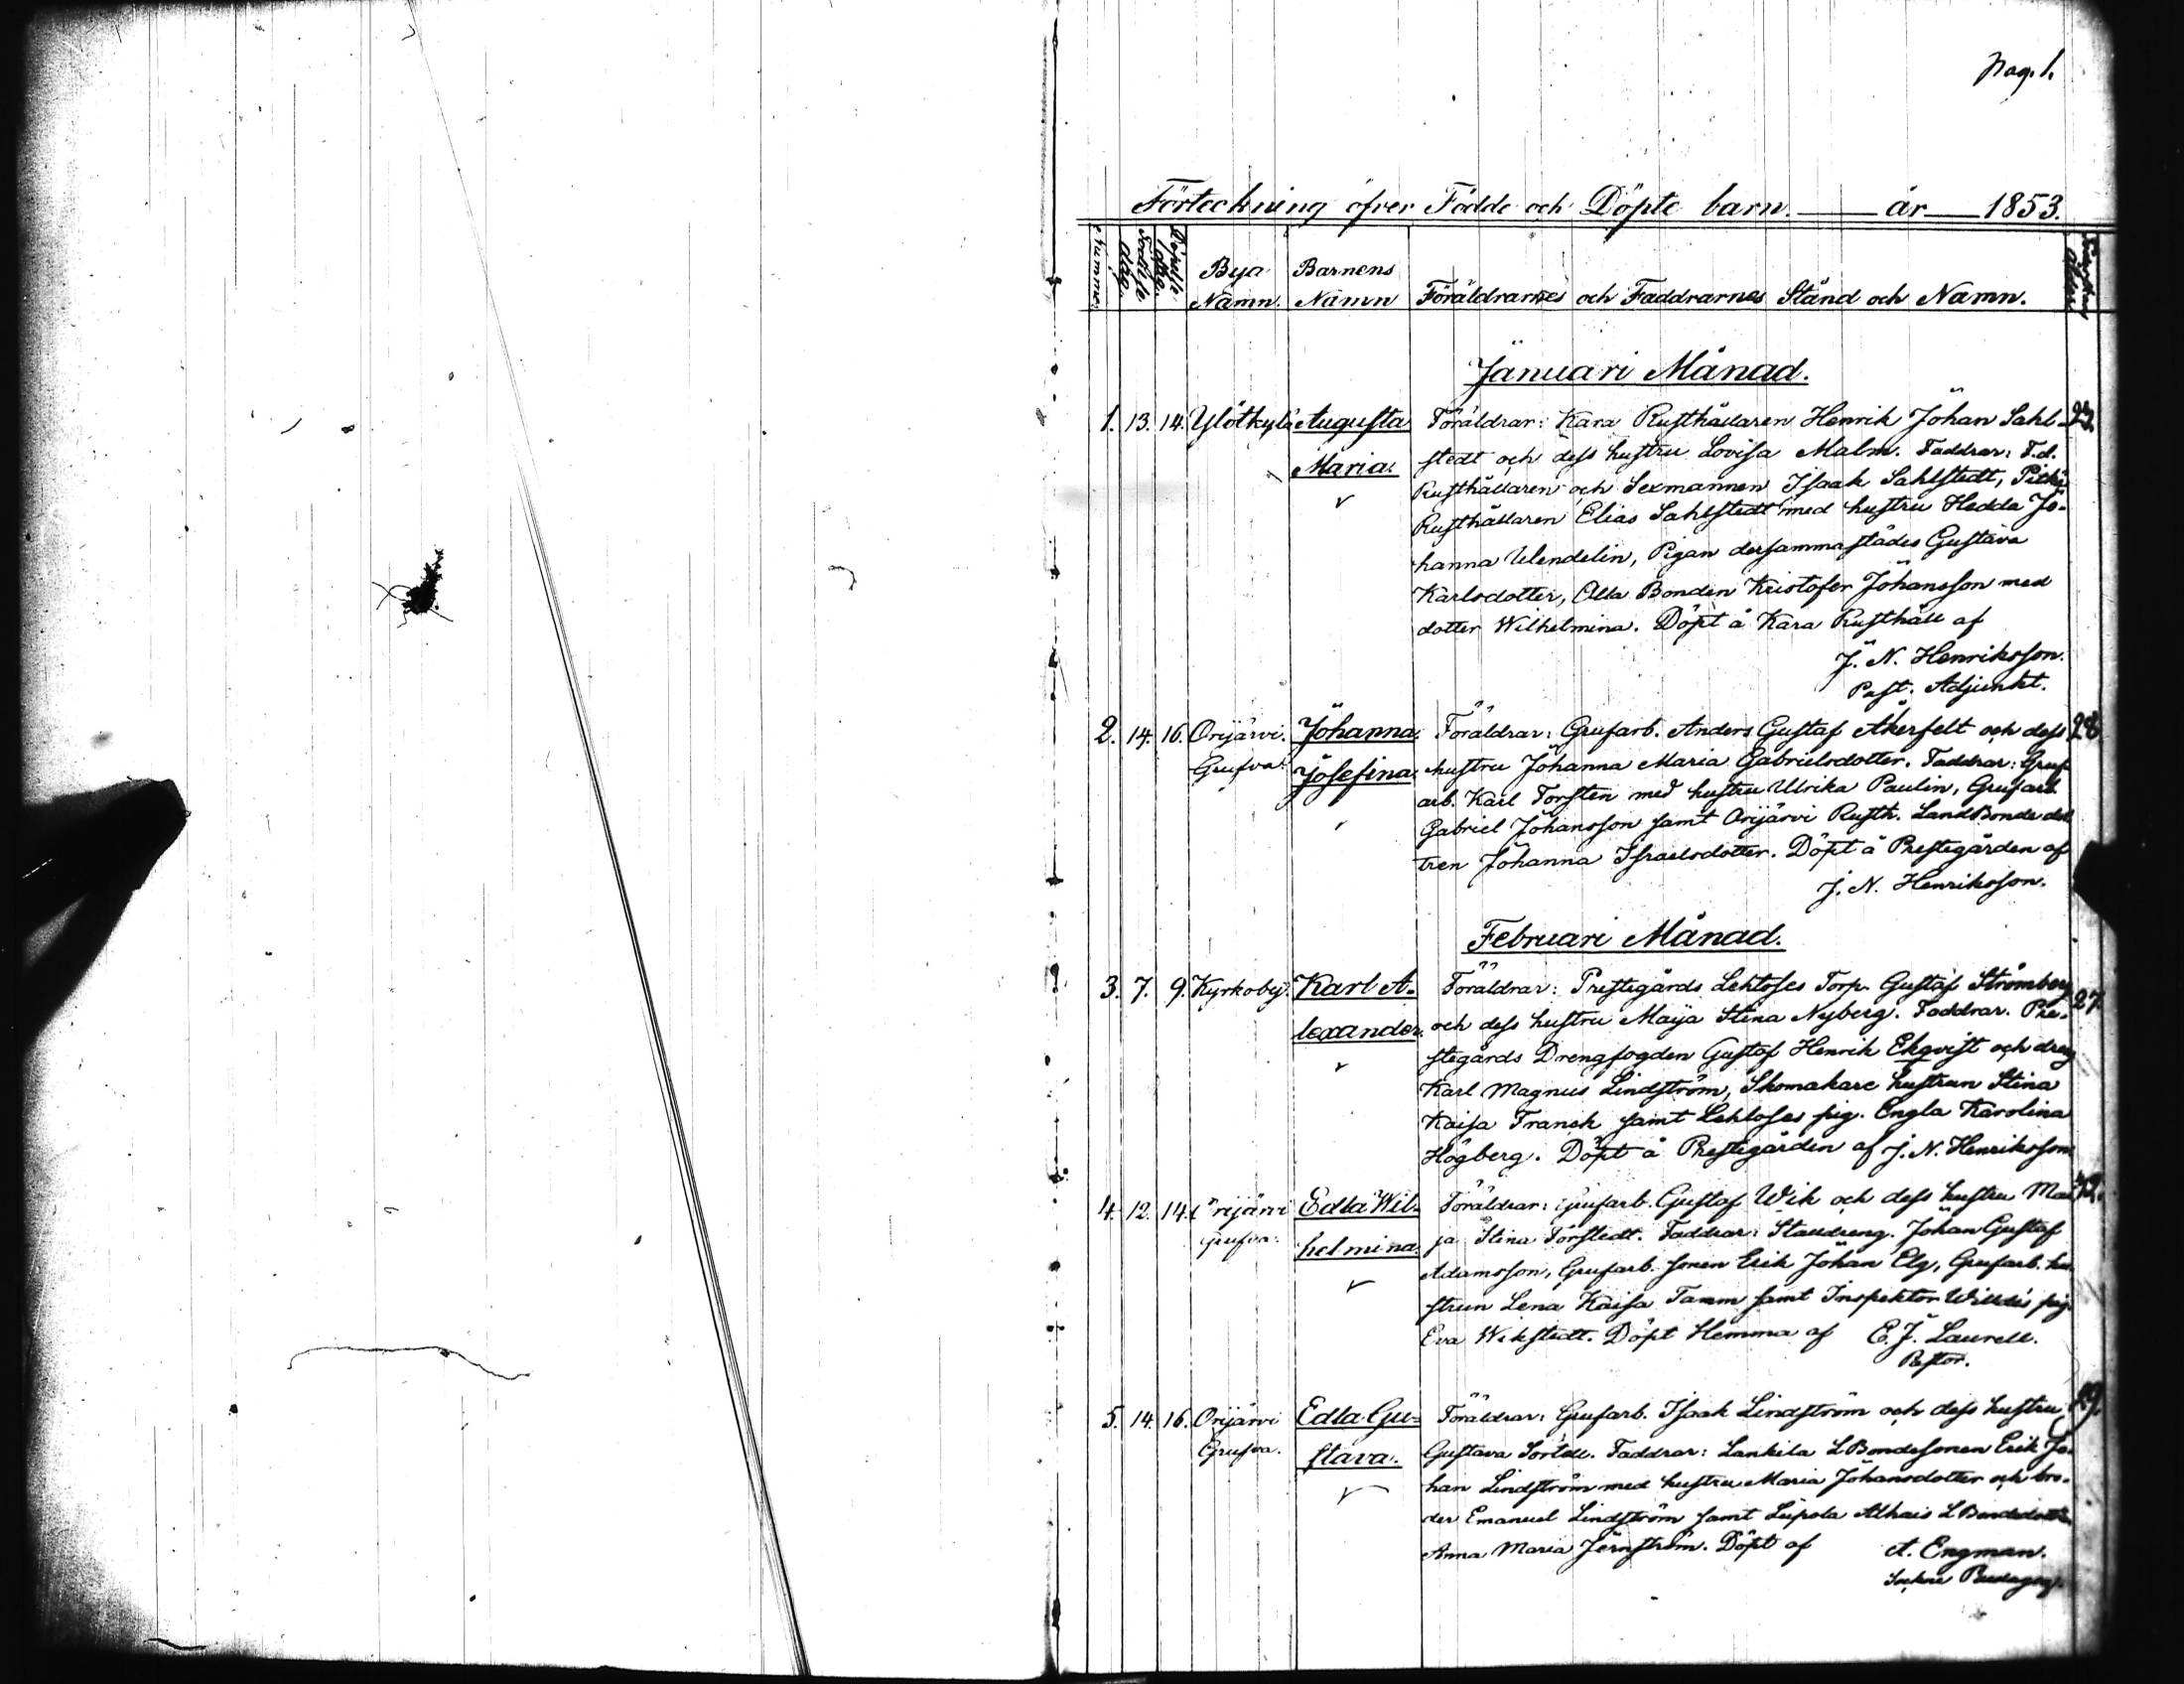 pag. 1.
Förteckning öfver Födde och Döpte barn. år 1853.
Nummer. Födelse dag. Döpelse dag. Bya Namn. Barnens Namn Föräldrarnes och Faddrarnes Stånd och Namn.
Januari Månad.
1. 13. 14. Ylötkylä Augusta Föräldrar: Kara Rusthållaren Henrik Johan Sahl-
Maria. stedt och dess hustru Lovisa Malm. Faddrar: F.d.
Rusthållaren och Sexmannen Isaak Sahlstedt,
Rusthållaren Elias Sahlstedt med hustru Hedda Jo-
hanna Wendelin, Pigan dersammastädes Gustava
Karlsdotter, Alla Bonden Kristofer Johansson med
dotter Wilhelmina. Döpt å Kara Rusthåll af
J. N. Henriksson.
Past. Adjunkt.
2. 14. 16. Orijärvi Johanna Föräldrar: Grufarb. Anders Gustaf Åkerfelt och dess 28
Grufva. Josefina. hustru Johanna Maria Gabrielsdotter. Faddrar: Gruf
arb. Karl Torsten med hustru Ulrika Paulin, Grufarb.
Gabriel Johansson samt Orijärvi Rusth. LandBonde dot
tren Johanna Israelsdotter. Döpt å Prestegården af
J. N. Henriksson.
Februari Månad.
3. 7. 9. Kyrkoby. Karl A- Föräldrar: Prestegårds Lehtoses Torp. Gustaf Strömberg 27.
lexander. och dess hustru Maija Stina Nyberg. Faddrar. Pre-
stegårds Drengfogden Gustaf Henrik Ekqvist och dreng
Karl Magnus Lindström, Skomakare hustrun Stina
Kaisa Fransk samt Lehtoses pig. Engla Karolina
Högberg. Döpt å Prestegården af J. N. Henriksson
4. 12. 14. Orijärvi Edla Wil- Föräldrar: Grufarb. Gustaf Wik och dess hustru Mai
Grufva. helmina. ja Stina Torstedt. Faddrar: Stalldreng. Johan Gustaf
Adamsson, Grufarb. sonen Erik Johan Elg, Grufarb. hu
strun Lena Kaisa Tamm samt Inspektor pig.
Eva Wikstedt. Döpt Hemma af E. J. Laurell.
Pastor.
5. 14. 16. Orijärvi Edla Gu- Föräldrar: Grufarb. Isaak Lindström och dess hustru 29.
Grufva. stava. Gustava. Faddrar: Lankila L Bondesonen Erik Jo-
han Lindström med hustru Maria Johansdotter och bro-
der Emanuel Lindström samt Alhais L Bondedotter
Anna Maria Jernström. Döpt af A. Engman.
Sockne Pedagog.